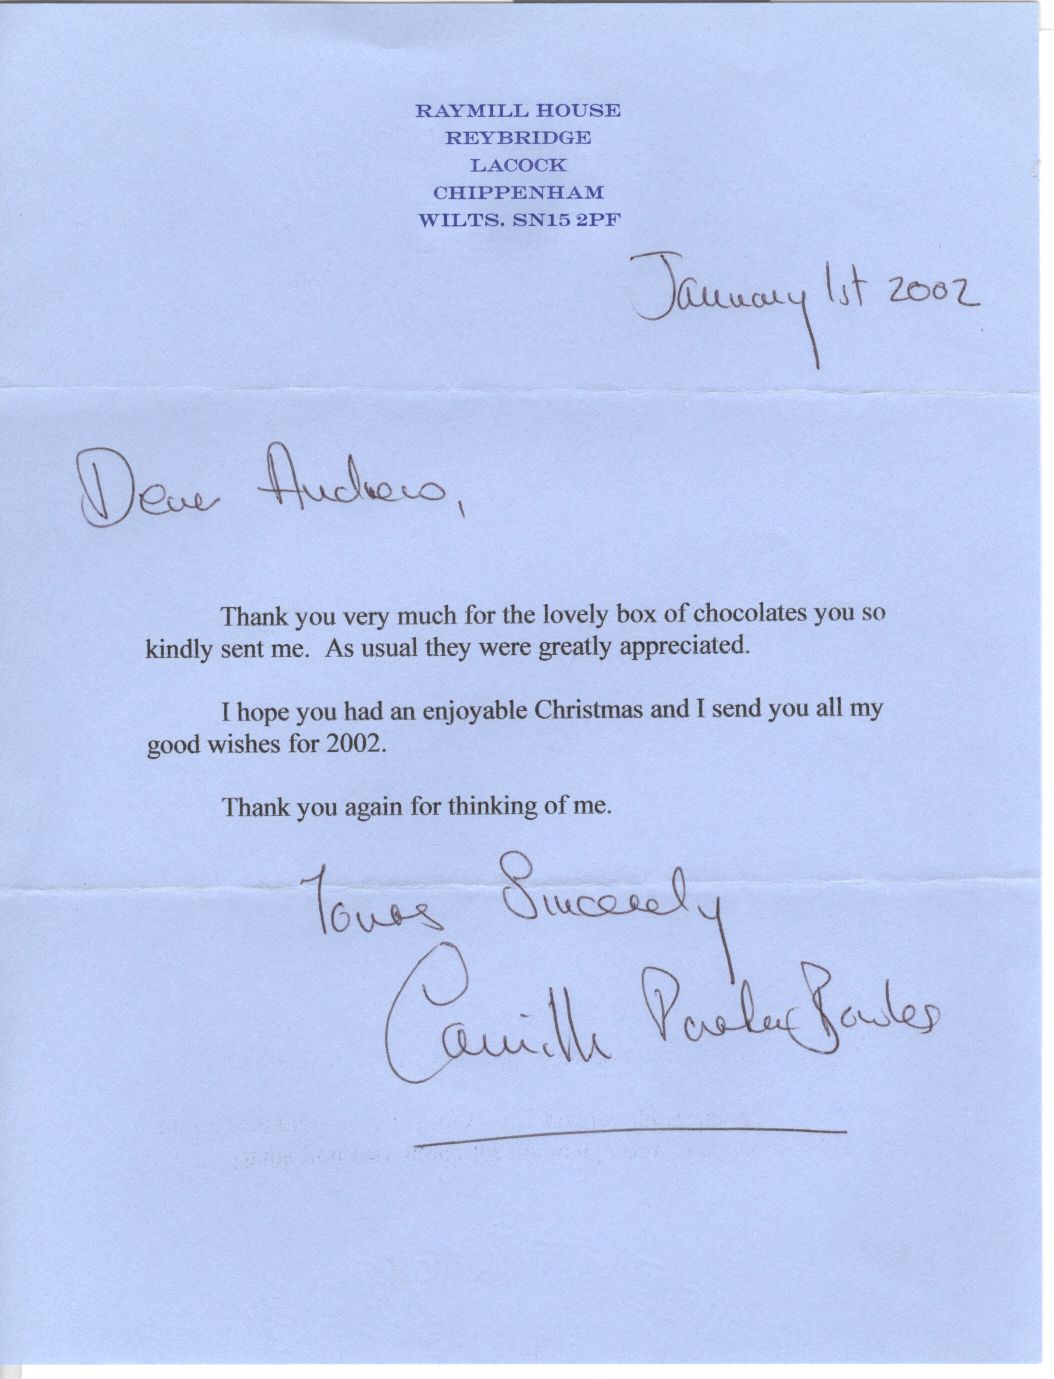 RAYMILL HOUSE
REYBRIDGE
LACOCK
CHIPPENHAM
WILTS. SN15 2PF
January 1st 2002
Dear Andrew,
Thank you very much for the lovely box of chocolates you so
kindly sent me. As usual they were greatly appreciated.
I hope you had an enjoyable Christmas and I send you all my
good wishes for 2002.
Thank you again for thinking of me.
Yours Sincerely
Camilla Parker Bowles